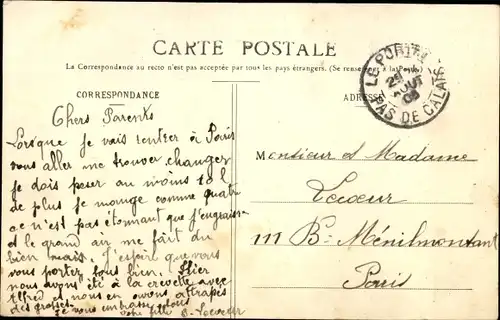 CARTE POSTALE
La Correspondance au recto n'est pas acceptée par tous les pays étrangers. (Se renseigner à la Poste)
CORRESPONDANCE
ADRESSE
LE PORTEL
25
AOUT
PAS DE CALAIS
Chers Parents
Lorsque je vais rentrer à Paris
vous aller me trouver changer
je dois peser au moins 10 l
de plus je mange comme quatre
ce n'est pas étonnant que j'engraisse
et le grand air me fait du
bien mais. J'espère que vous
vous portez tous bien. Hier
nous avons été à la crevette avec
Alfred et nous en avons attrapés
des grosses.
je vous embrasse tous
votre fille B. Lecœur
Monsieur et Madame
Lecœur
111 Bd Ménilmontant
Paris